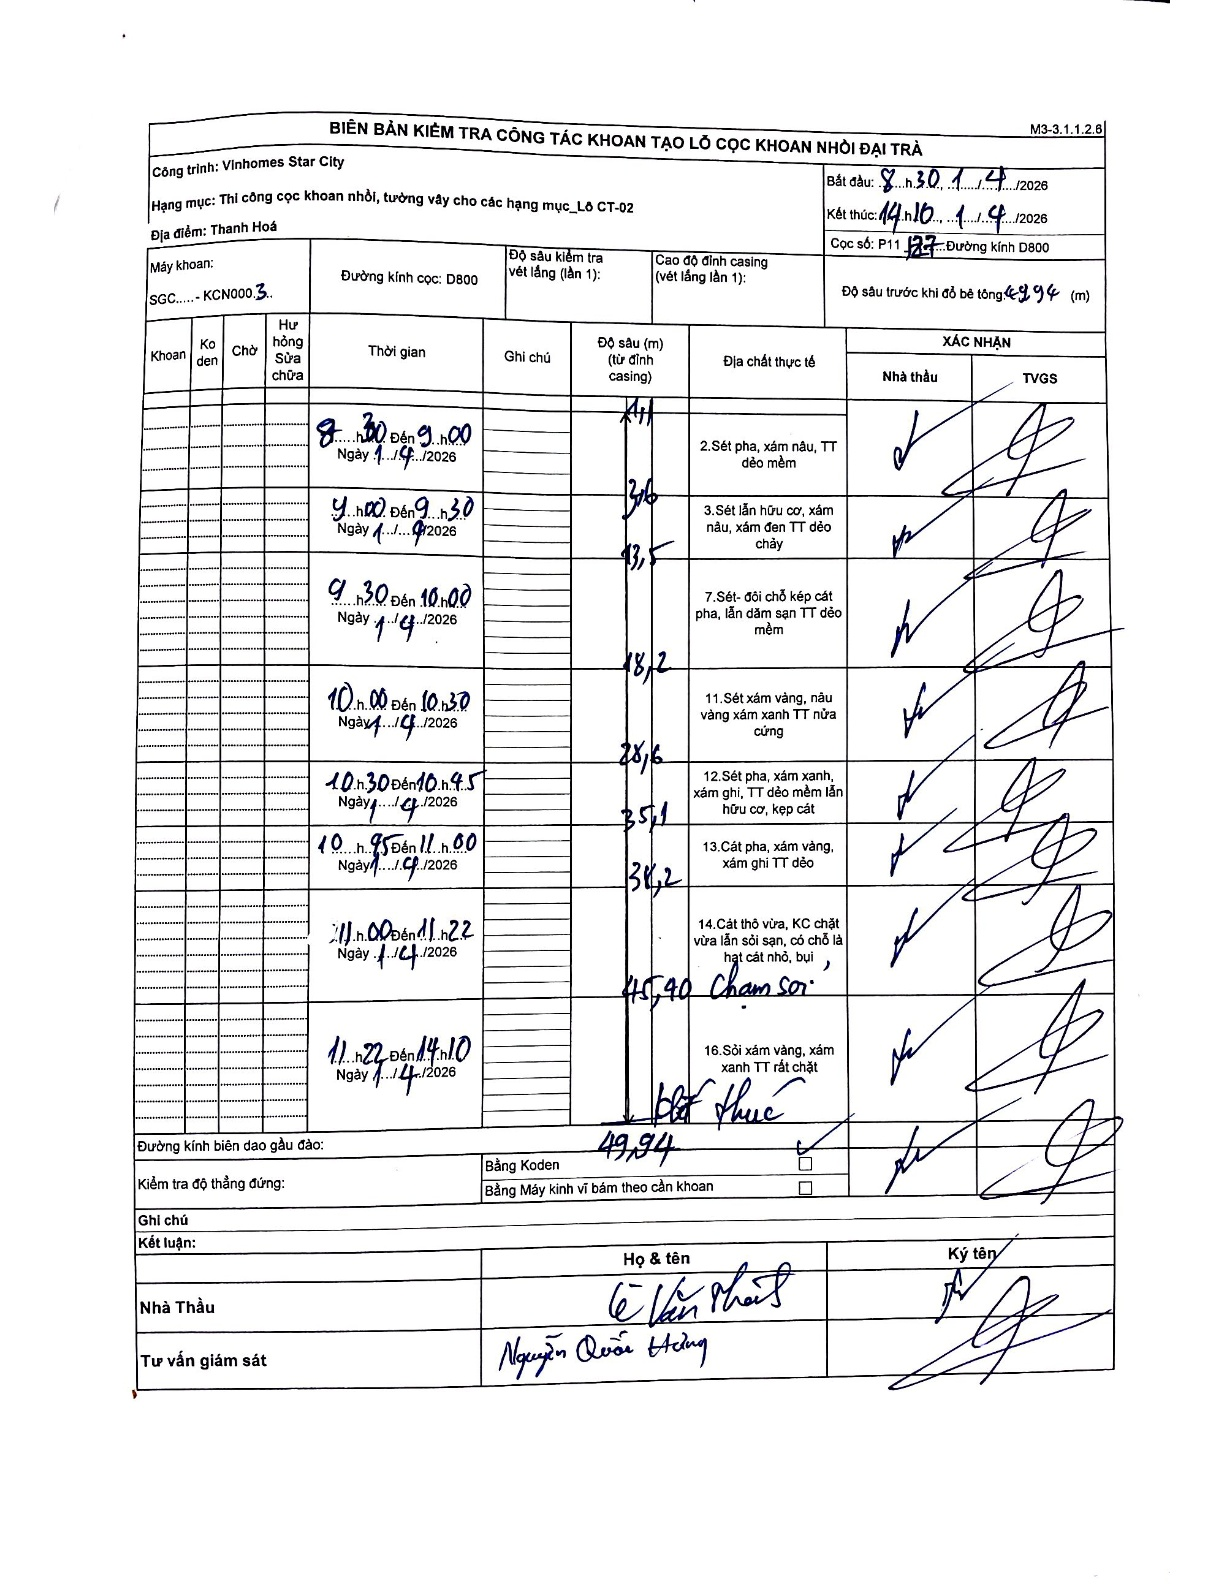 M3-3.1.1.2.6
BIÊN BẢN KIỂM TRA CÔNG TÁC KHOAN TẠO LỖ CỌC KHOAN NHỒI ĐẠI TRÀ
Công trình: Vinhomes Star City
Hạng mục: Thi công cọc khoan nhồi, tường vây cho các hạng mục_Lô CT-02
Địa điểm: Thanh Hoá
Bắt đầu: 8 h 30, 1 / 4 /2026
Kết thúc: 14 h 10, 1 / 4 /2026
Cọc số: P11 127 Đường kính D800
Máy khoan:
SGC.....- KCN000.3..
Đường kính cọc: D800
Độ sâu kiểm tra vét lắng (lần 1):
Cao độ đỉnh casing (vét lắng lần 1):
Độ sâu trước khi đổ bê tông: 49,94 (m)
Khoan Ko den Chờ Hư hỏng Sửa chữa Thời gian Ghi chú Độ sâu (m) (từ đỉnh casing) Địa chất thực tế XÁC NHẬN
Nhà thầu TVGS
1,1
8 h 30 Đến 9 h 00
Ngày 1 / 4 /2026
2.Sét pha, xám nâu, TT dẻo mềm
3,6
9 h 00 Đến 9 h 30
Ngày 1 / 4 /2026
3.Sét lẫn hữu cơ, xám nâu, xám đen TT dẻo chảy
13,5
9 h 30 Đến 10 h 00
Ngày 1 / 4 /2026
7.Sét- đôi chỗ kép cát pha, lẫn dăm sạn TT dẻo mềm
18,2
10 h 00 Đến 10 h 30
Ngày 1 / 4 /2026
11.Sét xám vàng, nâu vàng xám xanh TT nửa cứng
28,6
10 h 30 Đến 10 h 45
Ngày 1 / 4 /2026
12.Sét pha, xám xanh, xám ghi, TT dẻo mềm lẫn hữu cơ, kẹp cát
35,1
10 h 45 Đến 11 h 00
Ngày 1 / 4 /2026
13.Cát pha, xám vàng, xám ghi TT dẻo
38,2
11 h 00 Đến 11 h 22
Ngày 1 / 4 /2026
14.Cát thô vừa, KC chặt vừa lẫn sỏi sạn, có chỗ là hạt cát nhỏ, bụi
45,40 Chạm sỏi
11 h 22 Đến 14 h 10
Ngày 1 / 4 /2026
16.Sỏi xám vàng, xám xanh TT rất chặt
Kết thúc
49,94
Đường kính biên dao gầu đào:
Kiểm tra độ thẳng đứng:
Bằng Koden ☐
Bằng Máy kinh vĩ bám theo cần khoan ☐
Ghi chú
Kết luận:
Họ & tên Ký tên
Nhà Thầu Lê Văn
Tư vấn giám sát Nguyễn Quốc Hưng